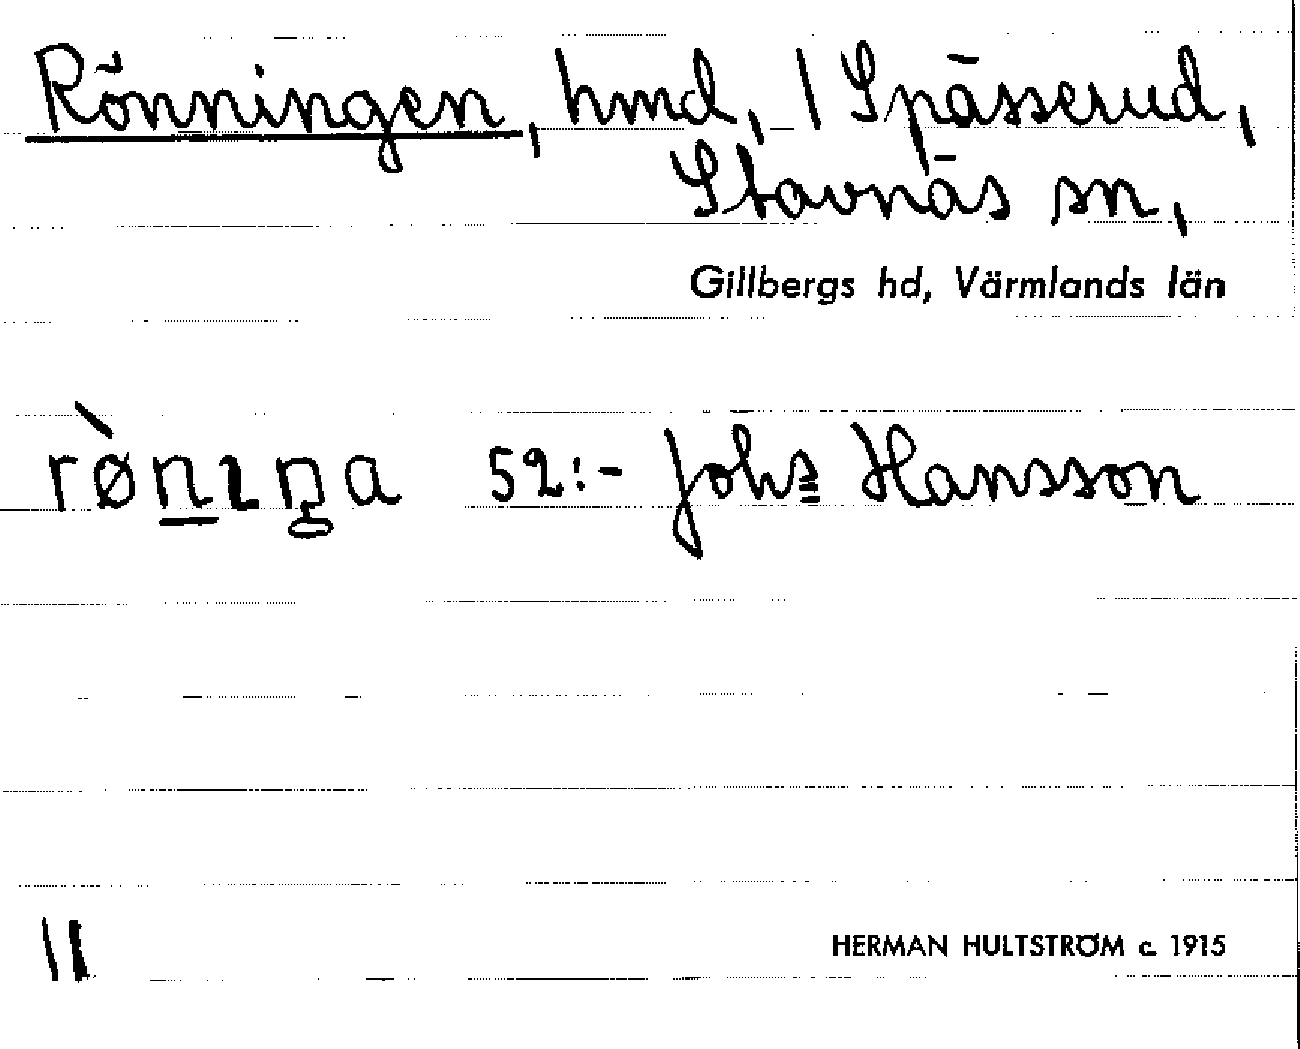 Rönningen, hmd, / Spässerud,
Stavnäs sn,
Gillbergs hd, Värmlands län
rø̀nıŋa 52:- Johs Hansson
\\
HERMAN HULTSTRÖM c. 1915